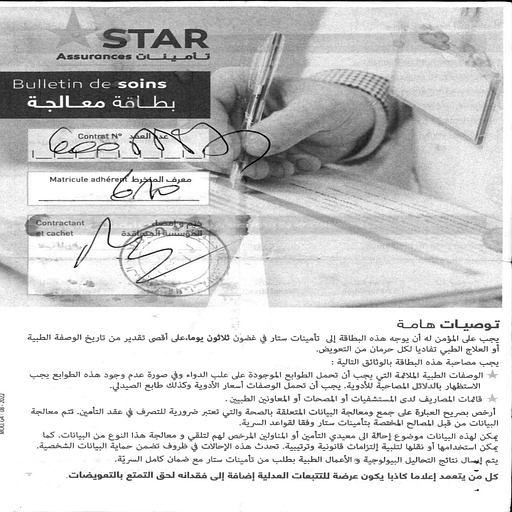 STAR
Assurances تـأمينـات
Bulletin de soins
بطـاقة معـالجة
Contrat N° عدد العقد
Matricule adhérent معرف المنخرط
Contractant et cachet
ختم و إمضاء المؤسسة المتعاقدة
توصيـات هامـة
يجب على المؤمن له أن يوجه هذه البطاقة إلى تأمينات ستار في غضون ثلاثون يوما،على أقصى تقدير من تاريخ الوصفة الطبية
أو العلاج الطبي تفاديا لكل حرمان من التعويض.
يجب مصاحبة هذه البطاقة بالوثائق التالية :
الوصفات الطبية الملائمة التي يجب أن تحمل الطوابع الموجودة على علب الدواء وفي صورة عدم وجود هذه الطوابع يجب
الاستظهار بالدلائل المصاحبة للأدوية. يجب أن تحمل الوصفات أسعار الأدوية وكذلك طابع الصيدلي.
قائمات المصاريف لدى المستشفيات أو المصحات أو المعاونين الطبيين.
أرخص بصريح العبارة على جمع ومعالجة البيانات المتعلقة بالصحة والتي تعتبر ضرورية للتصرف في عقد التأمين. تتم معالجة
البيانات من قبل المصالح المختصة بتأمينات ستار وفقا لقواعد السرية.
يمكن لهذه البيانات موضوع إحالة الى معيدي التأمين أو المناولين المرخص لهم لتلقي و معالجة هذا النوع من البيانات. كما
يمكن استخدامها أو نقلها لتلبية إلتزامات قانونية وترتيبية. تحدث هذه الإحالات في ظروف تضمن حماية البيانات الشخصية.
يتم إرسال نتائج التحاليل البيولوجية و الأعمال الطبية بطلب من تأمينات ستار مع ضمان كامل السرية.
كل من يتعمد إعلاما كاذبا يكون عرضة للتتبعات العدلية إضافة إلى فقدانه لحق التمتع بالتعويضات.